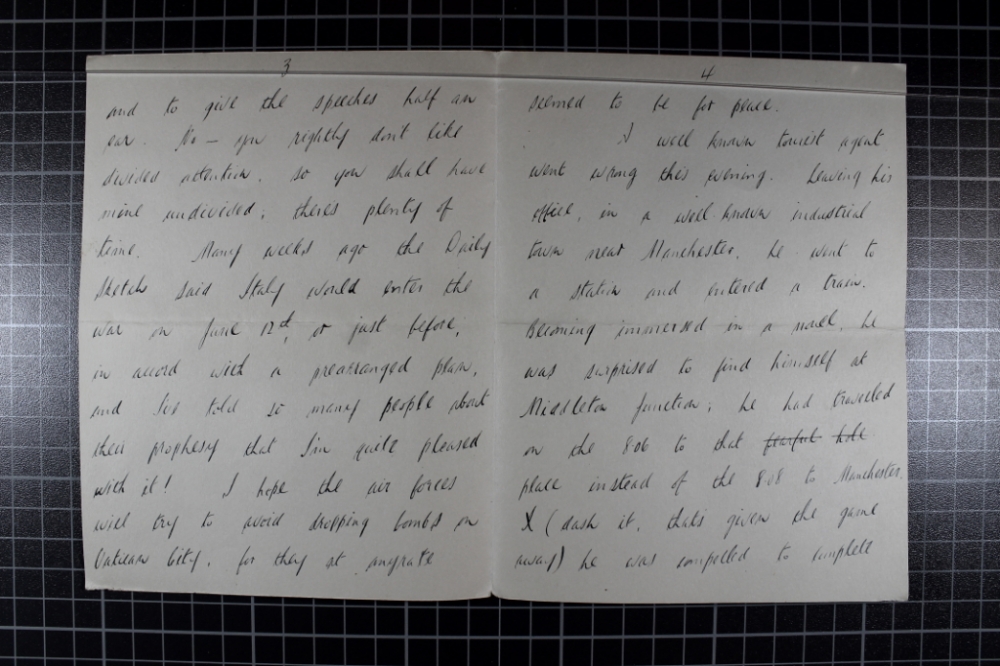 3
and to give the speeches half an
ear. No – you rightly don't like
divided attention, so you shall have
mine undivided; theres plenty of
time. Many weeks ago the Daily
Sketch said Italy would enter the
war on June 12th, or just before,
in accord with a prearranged plan,
and I've told so many people about
their prophesy that I'm quite pleased
with it! I hope the air forces
will try to avoid dropping bombs on
Vatican City, for they at anyrate
4
seemed to be for peace.
A well known tourist agent
went wrong this evening. Leaving his
office, in a well-known industrial
town near Manchester, he went to
a station and entered a train.
Becoming immersed in a novel, he
was surprised to find himself at
Middleton Junction; he had travelled
on the 8.06 to that fearful hole
place instead of the 8.08 to Manchester.
X (dash it, that's given the game
away) he was compelled to complete